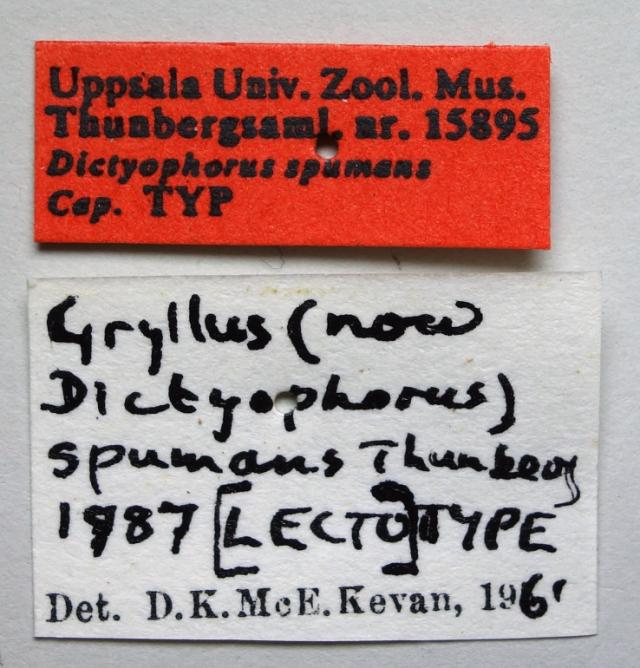 Uppsala Univ. Zool. Mus.
Thunbergsaml. nr. 15895
Dictyophorus spumans
Cap. TYP
Gryllus (now
Dictyophorus)
spumans Thunberg
1787 [LECTO]TYPE
Det. D.K.McE.Kevan, 196